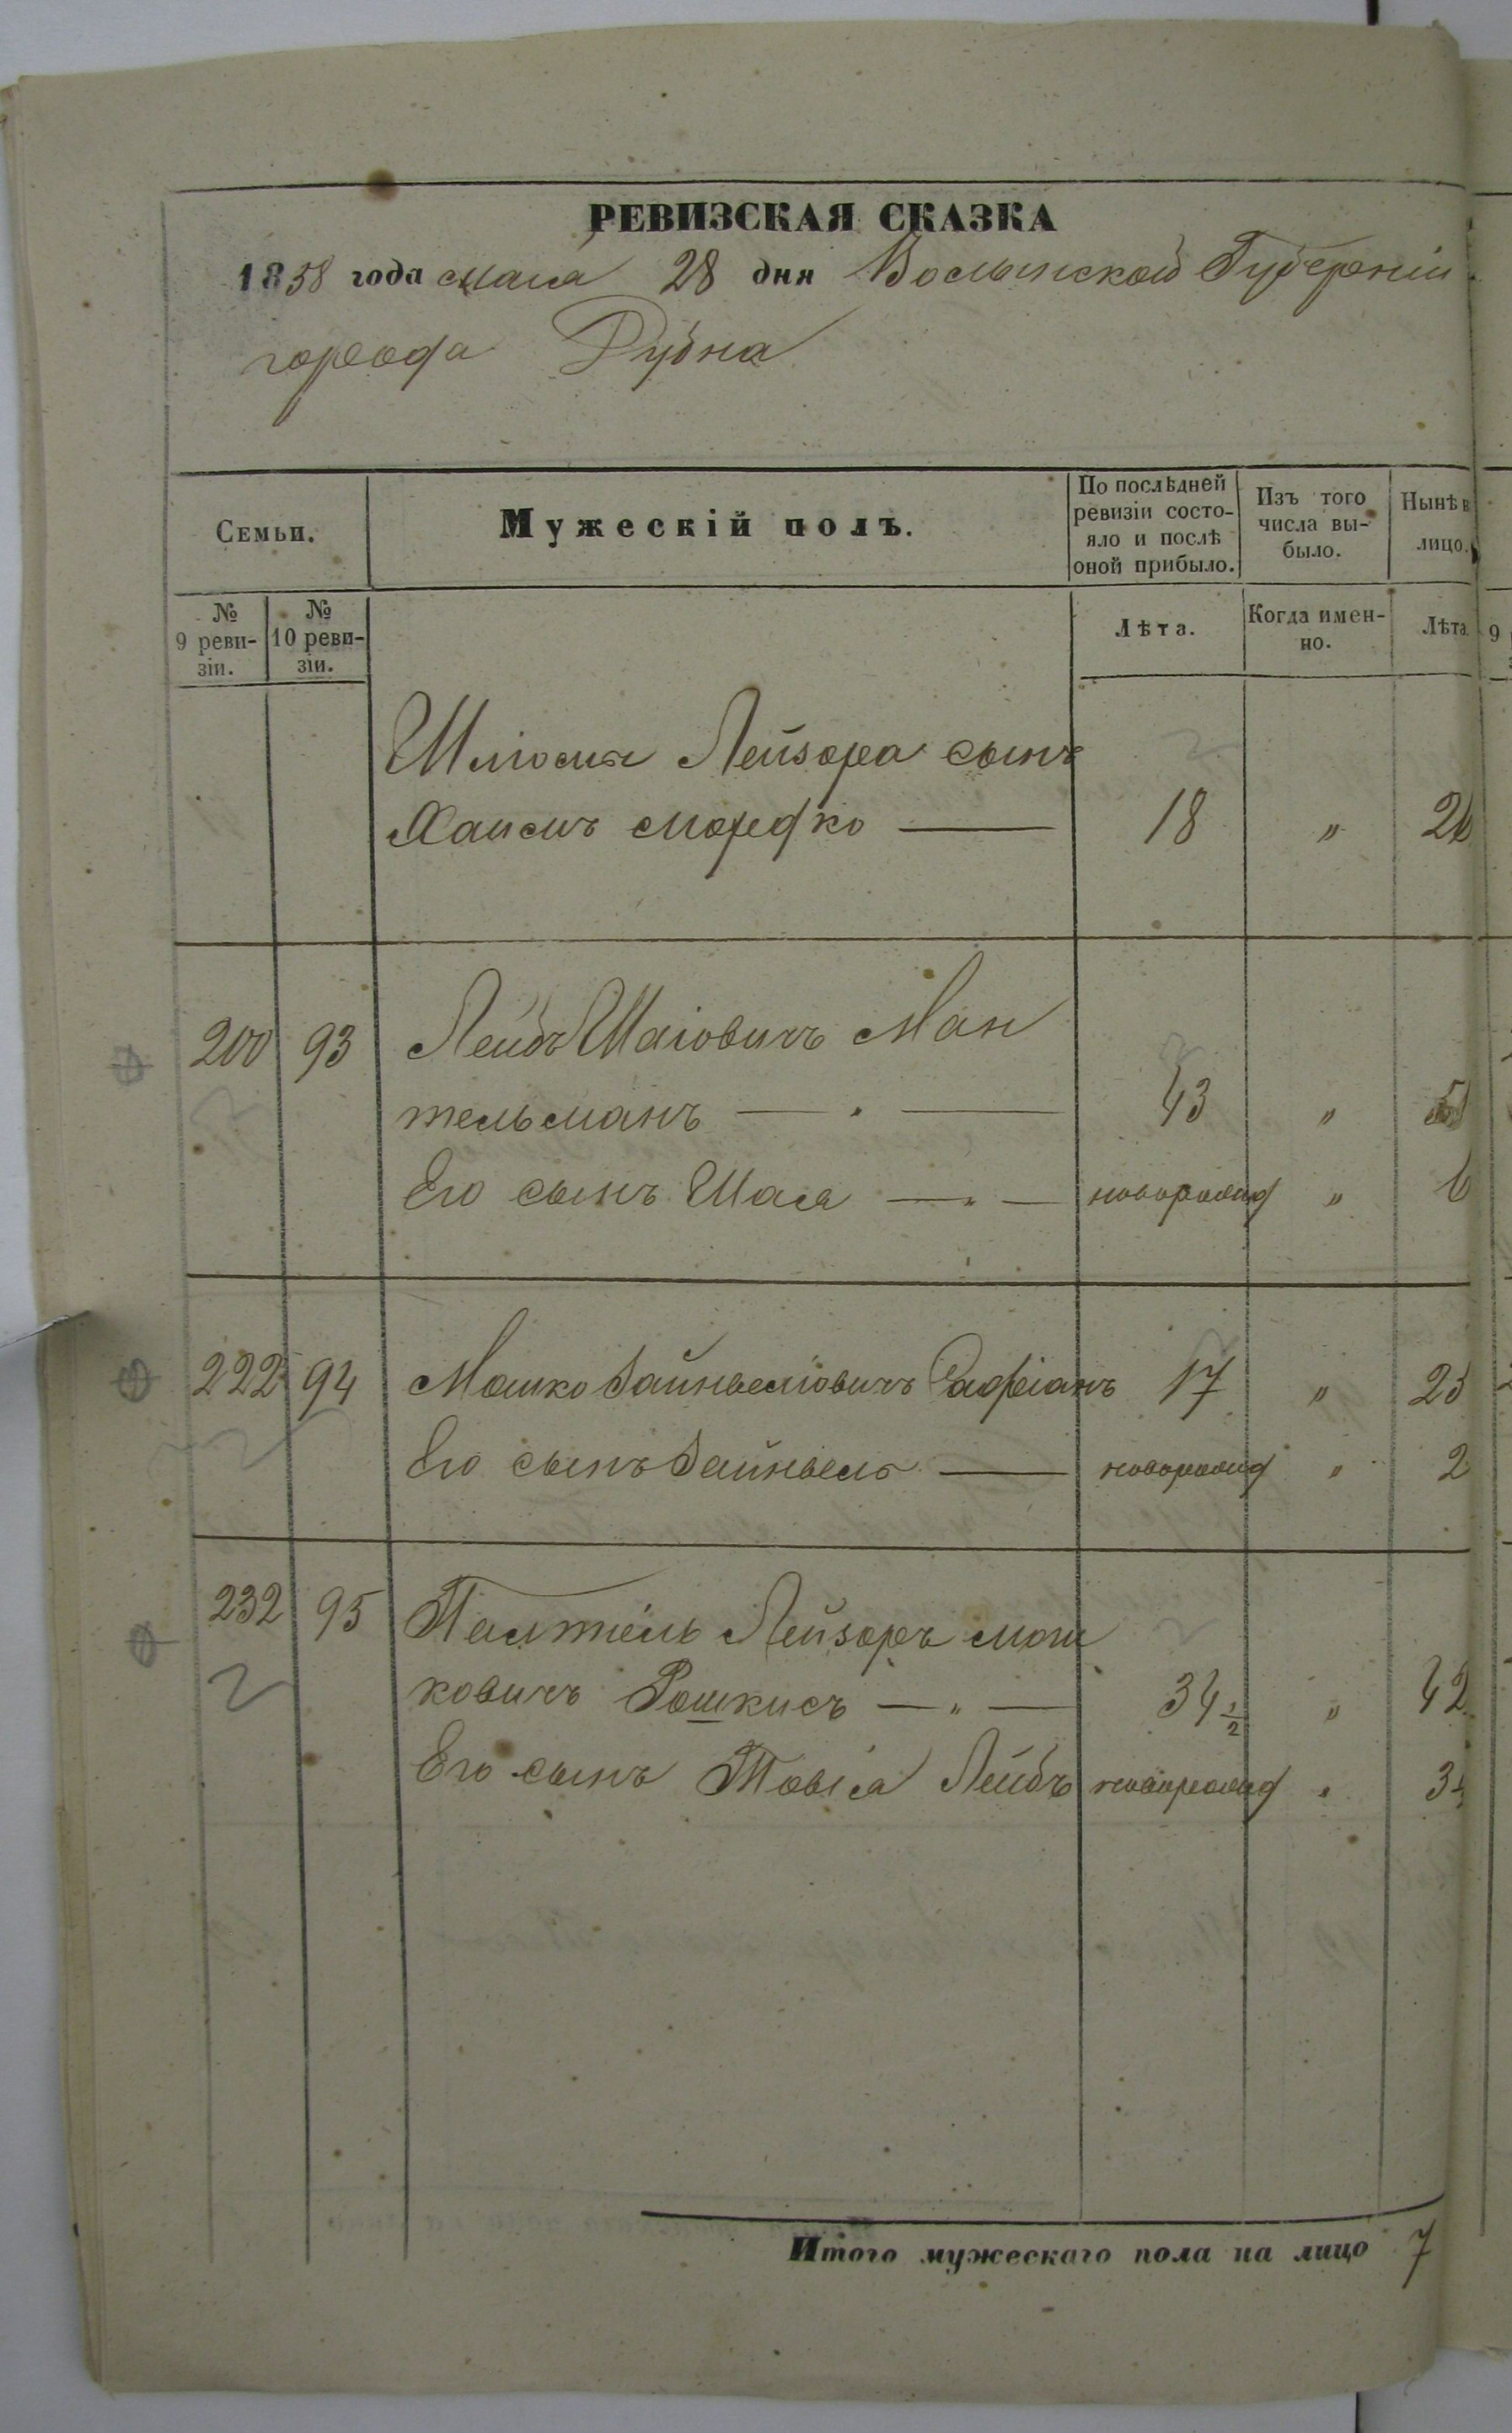 РЕВИЗСКАЯ СКАЗКА
1858 года мая 28 дня Волынской Губерніи
города Дубна
Семьи.
Мужескій полъ.
По послѣдней ревизіи состо-
яло и послѣ оной прибыло.
Изъ того числа вы-
было.
Нынѣ в лицо.
№ 9 реви-
зіи.
№ 10 реви-
зіи.
Лѣта.
Когда имен-
но.
Лѣта
Шлiома Лейзора сынъ
Хаимъ мордко — 18 " 26
200 93 Лейбъ Шаіовичъ Ман
тельманъ — 43 " 51
Его сынъ Шая — " — новорожд " 6
222 94 Мошко Зайнвеліовичъ 17 " 25
Его сынъ Зайнвель — новорожд " 2
232 95 Палтель Лейзоръ мош
ковичъ Рошкисъ — " — 34 1/2 " 42
Его сынъ Товія Лейбъ новорожд " 3
Итого мужескаго пола на лицо 7